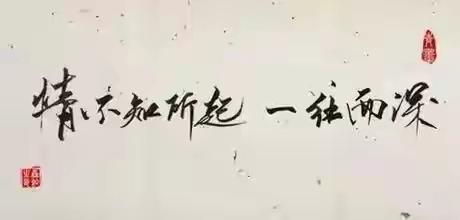 情不知所起 一往而深